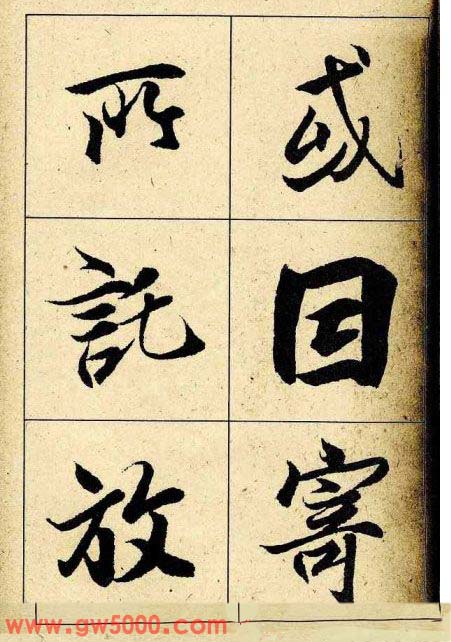 或因寄
所託放
www.gw5000.com